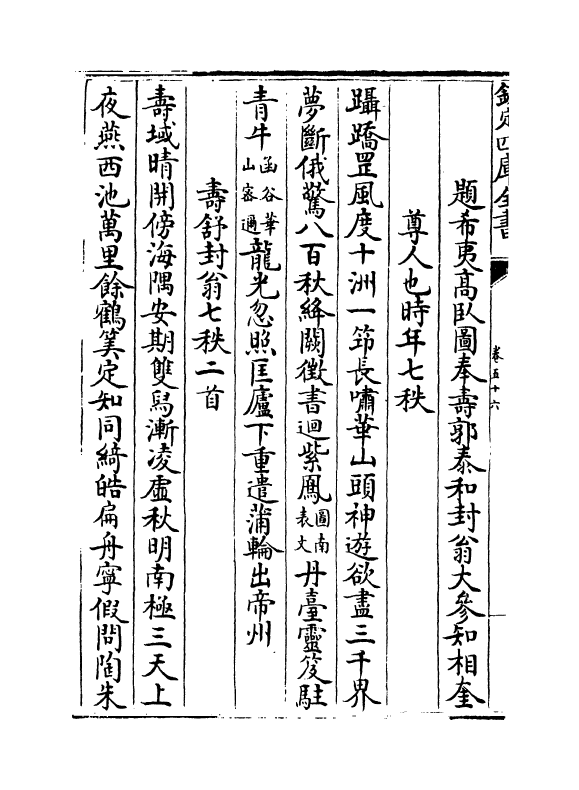 欽定四庫全書
卷五十六
題希夷高臥圖奉壽郭泰和封翁大參知相奎
尊人也時年七秩
躡蹻罡風度十洲一笻長嘯華山頭神遊欲盡三千界
夢斷俄驚八百秋絳闕徵書迴紫鳳圖南表文丹臺靈笈駐
青牛函谷華山密邇龍光忽照匡廬下重遣蒲輪出帝州
壽舒封翁七秩二首
壽域晴開傍海隅安期雙舄漸凌虛秋明南極三天上
夜燕西池萬里餘鶴筭定知同綺皓扁舟寧假問陶朱